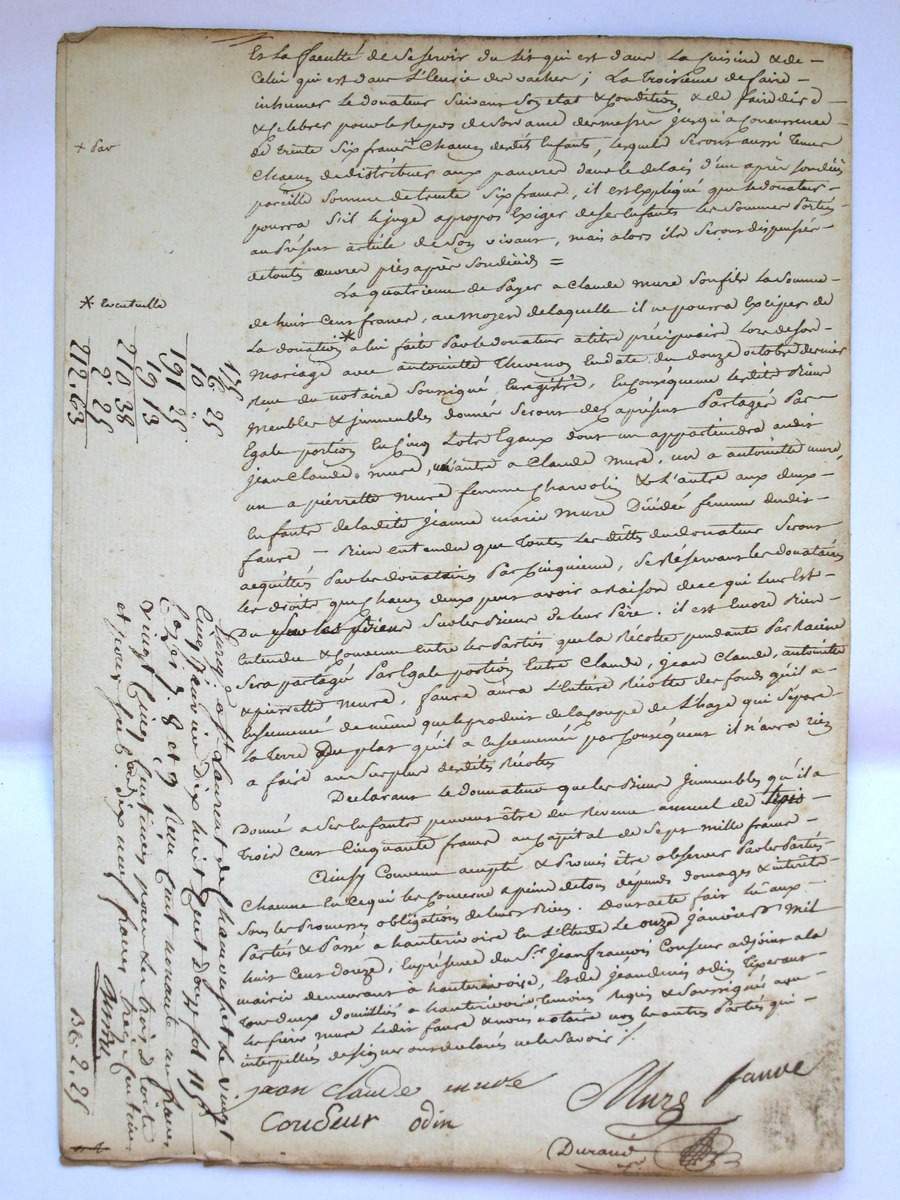 Et la faculté de se servir du lit qui est dans la cuisine & de
Celui qui est dans l'Ecurie des vaches ; La Troisieme de faire
inhumer le donateur suivant Son etat & Condition, & de faire dire
& Celebrer pour le Repos de Son ame des messes jusqu'a Concurrence
de trente Six francs Chacun desdits Enfants, lesquels Seront aussi Tenus
Chacun de distribuer aux pauvres dans le delais d'un après Son décès
pareille Somme de trente Six francs, il est Expliqué que le donateur
pourra S'il le juge apropos Exiger de ses Enfants les Sommes Portés
au Présent article de Son vivant, mais alors ils Seront dispensés
de toutes œuvres pies après Son décès =
La quatrieme de Payer a Claude Mure Son fils La Somme
de huit Cent francs, au moyen de laquelle il ne pourra Exciper de
La donation * a lui faite Par le donateur a titre préciputaire Lors de Son
Mariage avec antoinette Thevenon En date du douze octobre dernier
Reçu du notaire Soussigné Enregistré, En Conséquence lesdits Biens
Meubles & immeubles donnés Seront des aprésent Partagés Par
Egale portion En Cinq Lots Egaux dont un appartiendra audit
jean Claude Mure, un autre a Claude Mure, un a antoinette mure,
un a pierrette Mure femme Charvolin & l'autre aux deux
Enfants de ladite jeanne marie Mure Décédée femme dudit
faure — Bien entendu que Toutes les dettes du donateur Seront
acquittés Par les donataires Par Cinquieme, Se Réservant les donataires
les droits que Chacun d'eux peut avoir a Raison de ce qui leur Est
Du Sur les Biens Sur les Biens de leur Père. il est Encore Bien
Entendu & Convenu entre les Parties que la Récolte pendante Par Racine
Sera partagé Par Egale portion Entre Claude, jean Claude, antoinette
& pierrette Mure, faure aura l'Entiere Récolte des fonds qu'il a
Ensemencé de même que le produit de la Coupe de l'haye qui Sépare
la Terre Du plat qu'il a Ensemencée par Conséquent il n'aura rien
a faire au Surplus desdites Récoltes
Declarant le donateur que les Biens immeubles qu'il a
Donné a Ses Enfants peuvent être du Revenu annuel de
Trois Cent Cinquante francs au Capital de Sept Mille francs
Ainsy Convenu accepté & Promis être observer Par les Parties
Chacune En Ce qui les Concerne a peine de tous dépends domages & intérêts
Sous les Promesses obligations de leurs Biens. Dont acte fait Lu aux
Parties & Passé a hauterivoire En l'Etude Le onze janvier Mil
huit Cent douze, En présence du Sr. Jean François Coudeur adjoint a la
mairie demeurant a hauterivoire, Et de jean denis odin Tisserant
Tous deux domiciliés a hauterivoire temoins Requis & Soussignés avec
les freres Mure ledit faure & nous notaire non les autres Parties qui
interpellés de signer ont déclarés ne le Savoir /.
jean Claude mure
Mure faure
Coudeur odin
Durand
+ Par
* Eventuelle
115
6 25
10
191 25
19 13
210 38
2 25
212,63
Enreg. a St. Laurent de Chamousset le vingt
Cinq janvier dix huit Cent douze fol 115
Cases 7. 8 et 9 Reçu Cent nonante un francs
vingt Cinq Centimes pour
et dix neuf francs treize Centimes
2,25